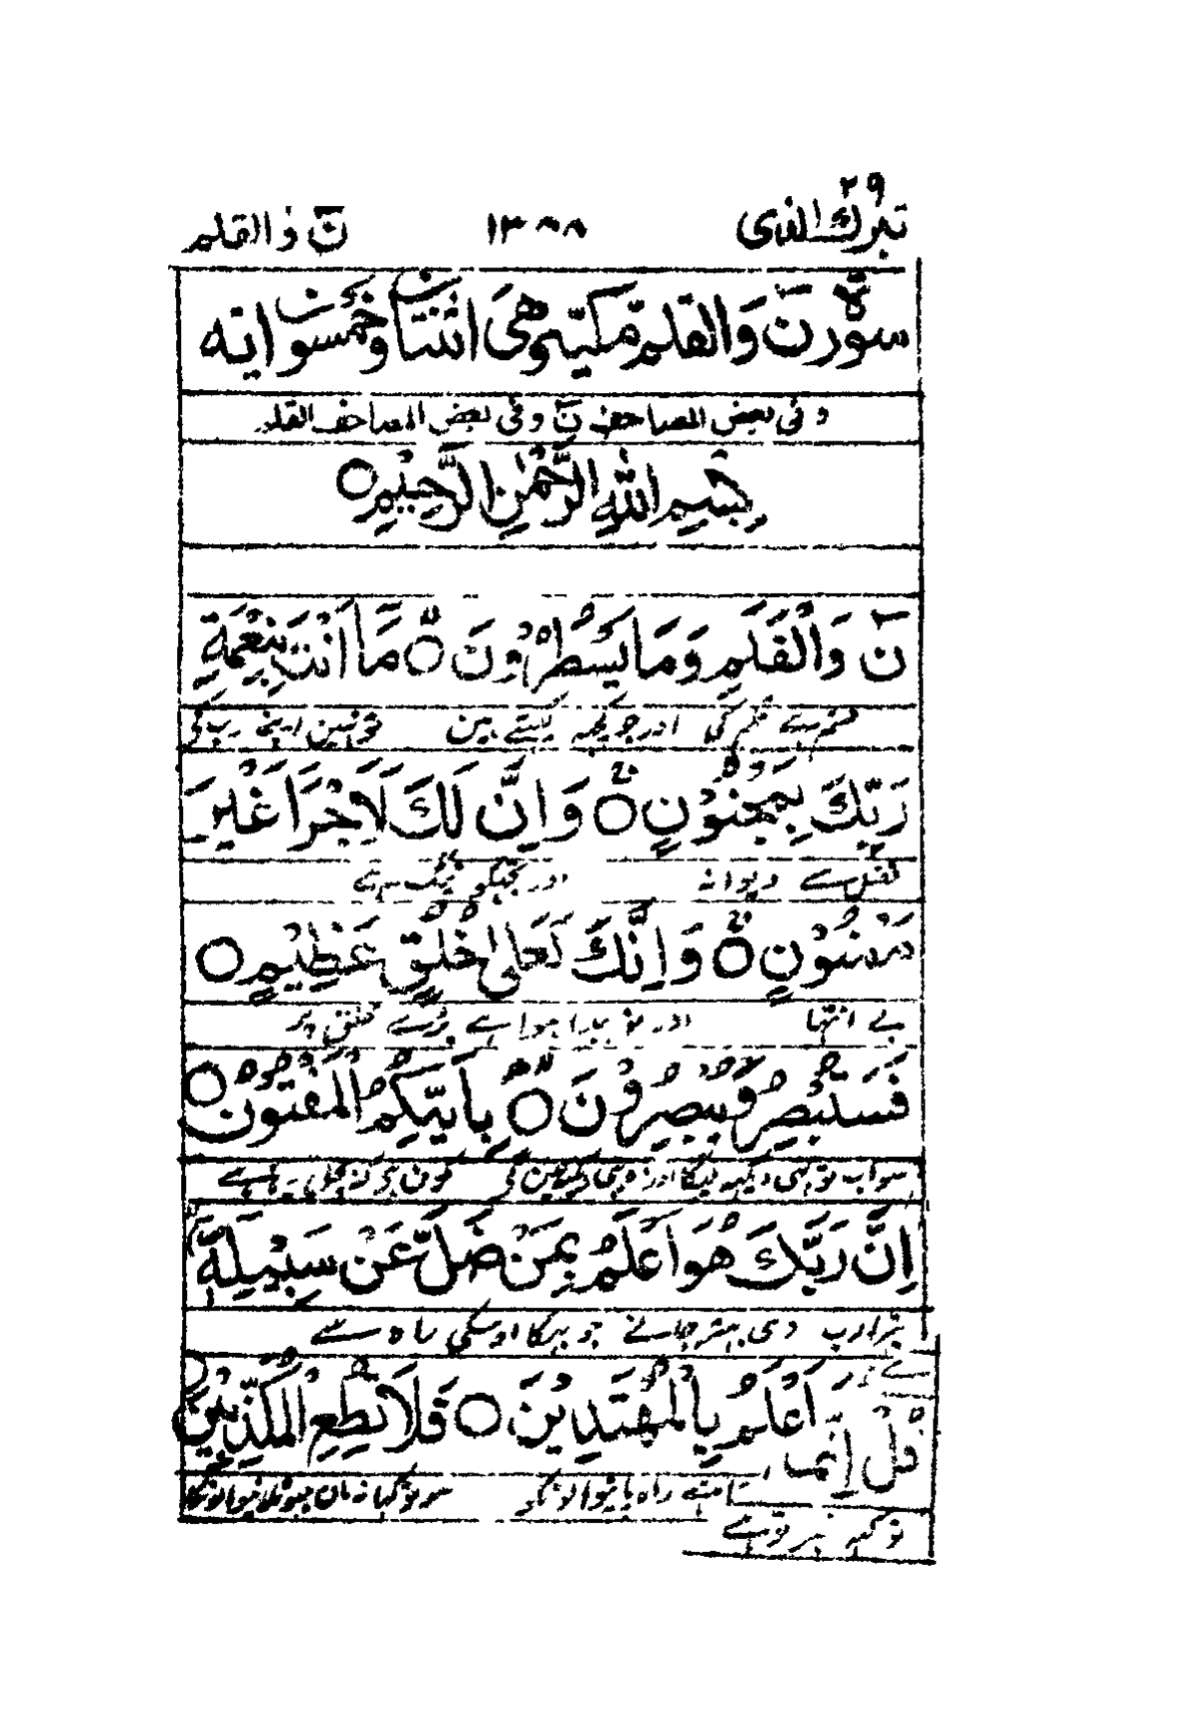 ۲۹
تبرك الذى ۱۳۸۸ نٓ والقلم
سورة نٓ والقلم مكيّة وهى اثنتان وخمسون اية
وفى بعض المصاحف نٓ وفى بعض المصاحف القلم
بِسْمِ اللّٰهِ الرَّحْمٰنِ الرَّحِيْمِ ○
نٓ وَالْقَلَمِ وَمَا يَسْطُرُوْنَ ○ مَا اَنْتَ بِنِعْمَةِ
قسم ہے قلم کی اور جو کچھ لکھتے ہین تو نہین اپنے رب کی
رَبِّكَ بِمَجْنُوْنٍ ○ وَاِنَّ لَكَ لَاَجْرًا غَيْرَ
فضل سے دیوانہ اور تجکو نیگ ہے
مَمْنُوْنٍ ○ وَاِنَّكَ لَعَلٰى خُلُقٍ عَظِيْمٍ ○
بے انتہا اور تو پیدا ہوا ہے بڑے خلق پر
فَسَتُبْصِرُ وَيُبْصِرُوْنَ ○ بِاَيِّكُمُ الْمَفْتُوْنُ ○
سو اب تو بھی دیکھ لیگا اور وہ بھی دیکھ لین گے کون ہے کہ بچل رہا ہے
اِنَّ رَبَّكَ هُوَ اَعْلَمُ بِمَنْ ضَلَّ عَنْ سَبِيْلِهٖ
تیرا رب وہی بہتر جانے جو بہکا اوسکی راہ سے
اَعْلَمُ بِالْمُهْتَدِيْنَ ○ فَلَا تُطِعِ الْمُكَذِّبِيْنَ
قُلْ اِنَّمَا
راہ پانیوالونکو سو تو کہا نہ مان جھوٹلانیوالونکا
تو کہہ